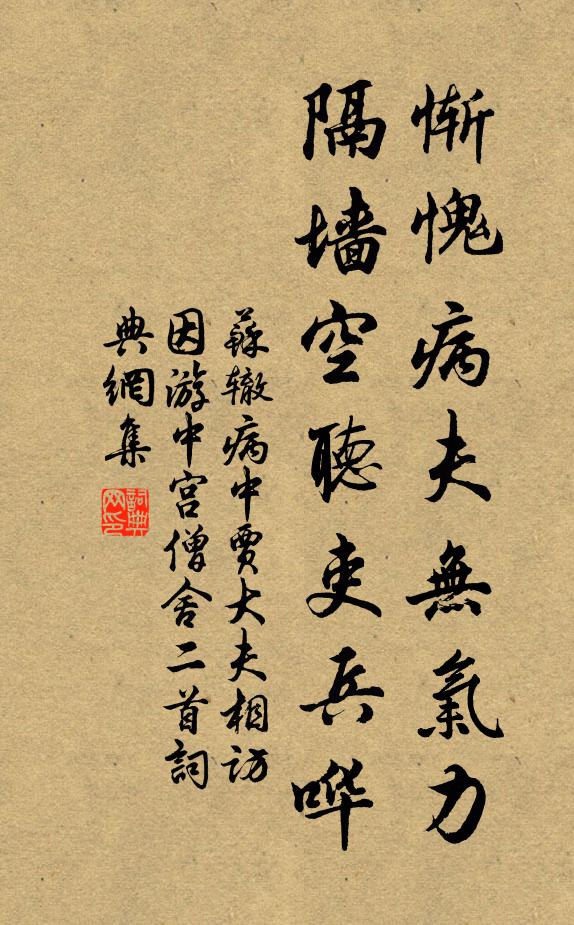 慚愧病夫無氣力
隔墙空聽吏兵哗
蘇辙病中賈大夫相訪
因游中宫僧舍二首詞
典網集
詞典
网印